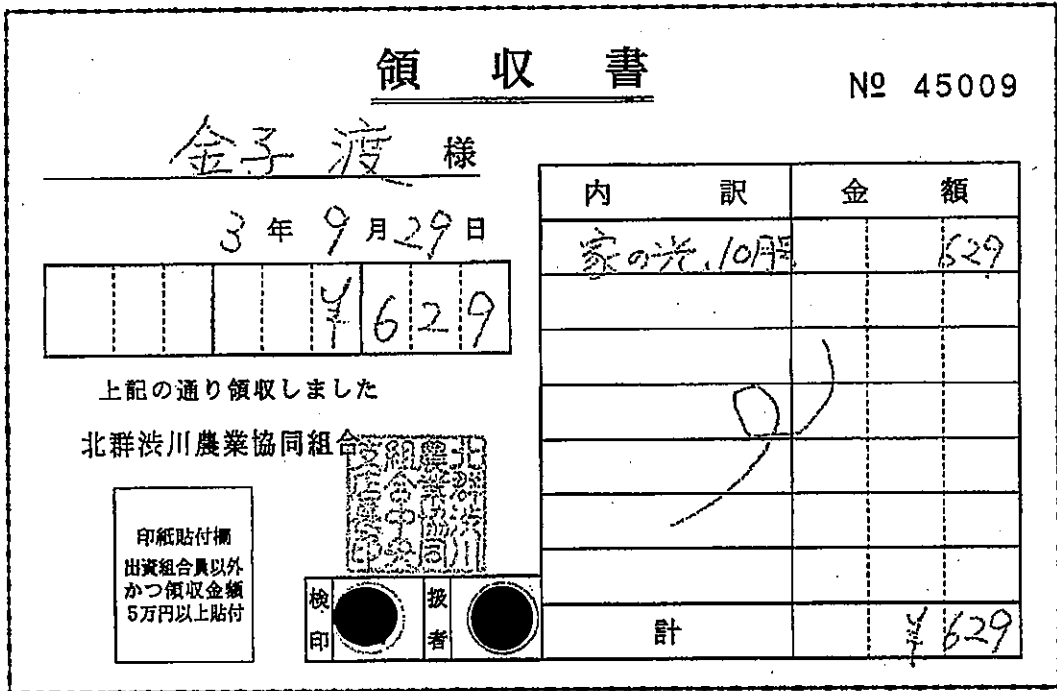 領収書
№ 45009
金子 渡 様
3年 9月29日
¥629
上記の通り領収しました
北群渋川農業協同組合
北群渋川
農業協同
組合中央
支店長印
印紙貼付欄
出資組合員以外
かつ領収金額
5万円以上貼付
検印
扱者
内訳 金額
家の光、10月 629
計 ¥629